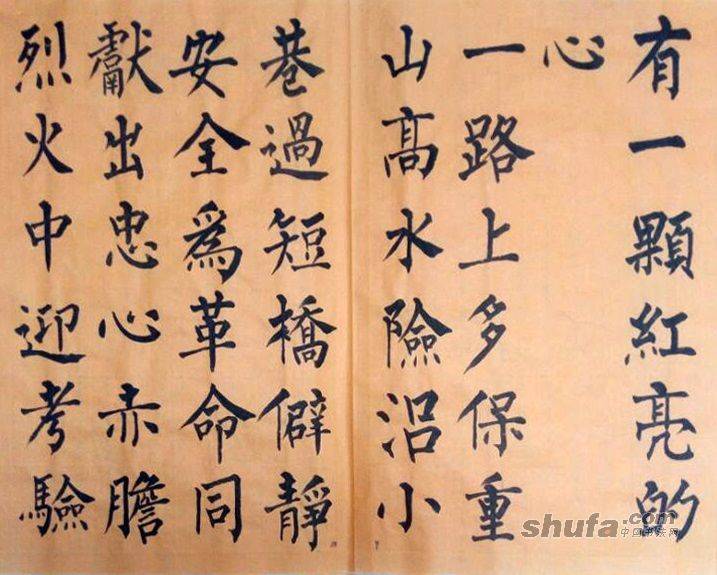 有一顆紅亮的
心
一路上多保重
山高水險沿小
巷過短橋僻靜
安全爲革命同
獻出忠心赤膽
烈火中迎考驗
shufa.com
中国书法网